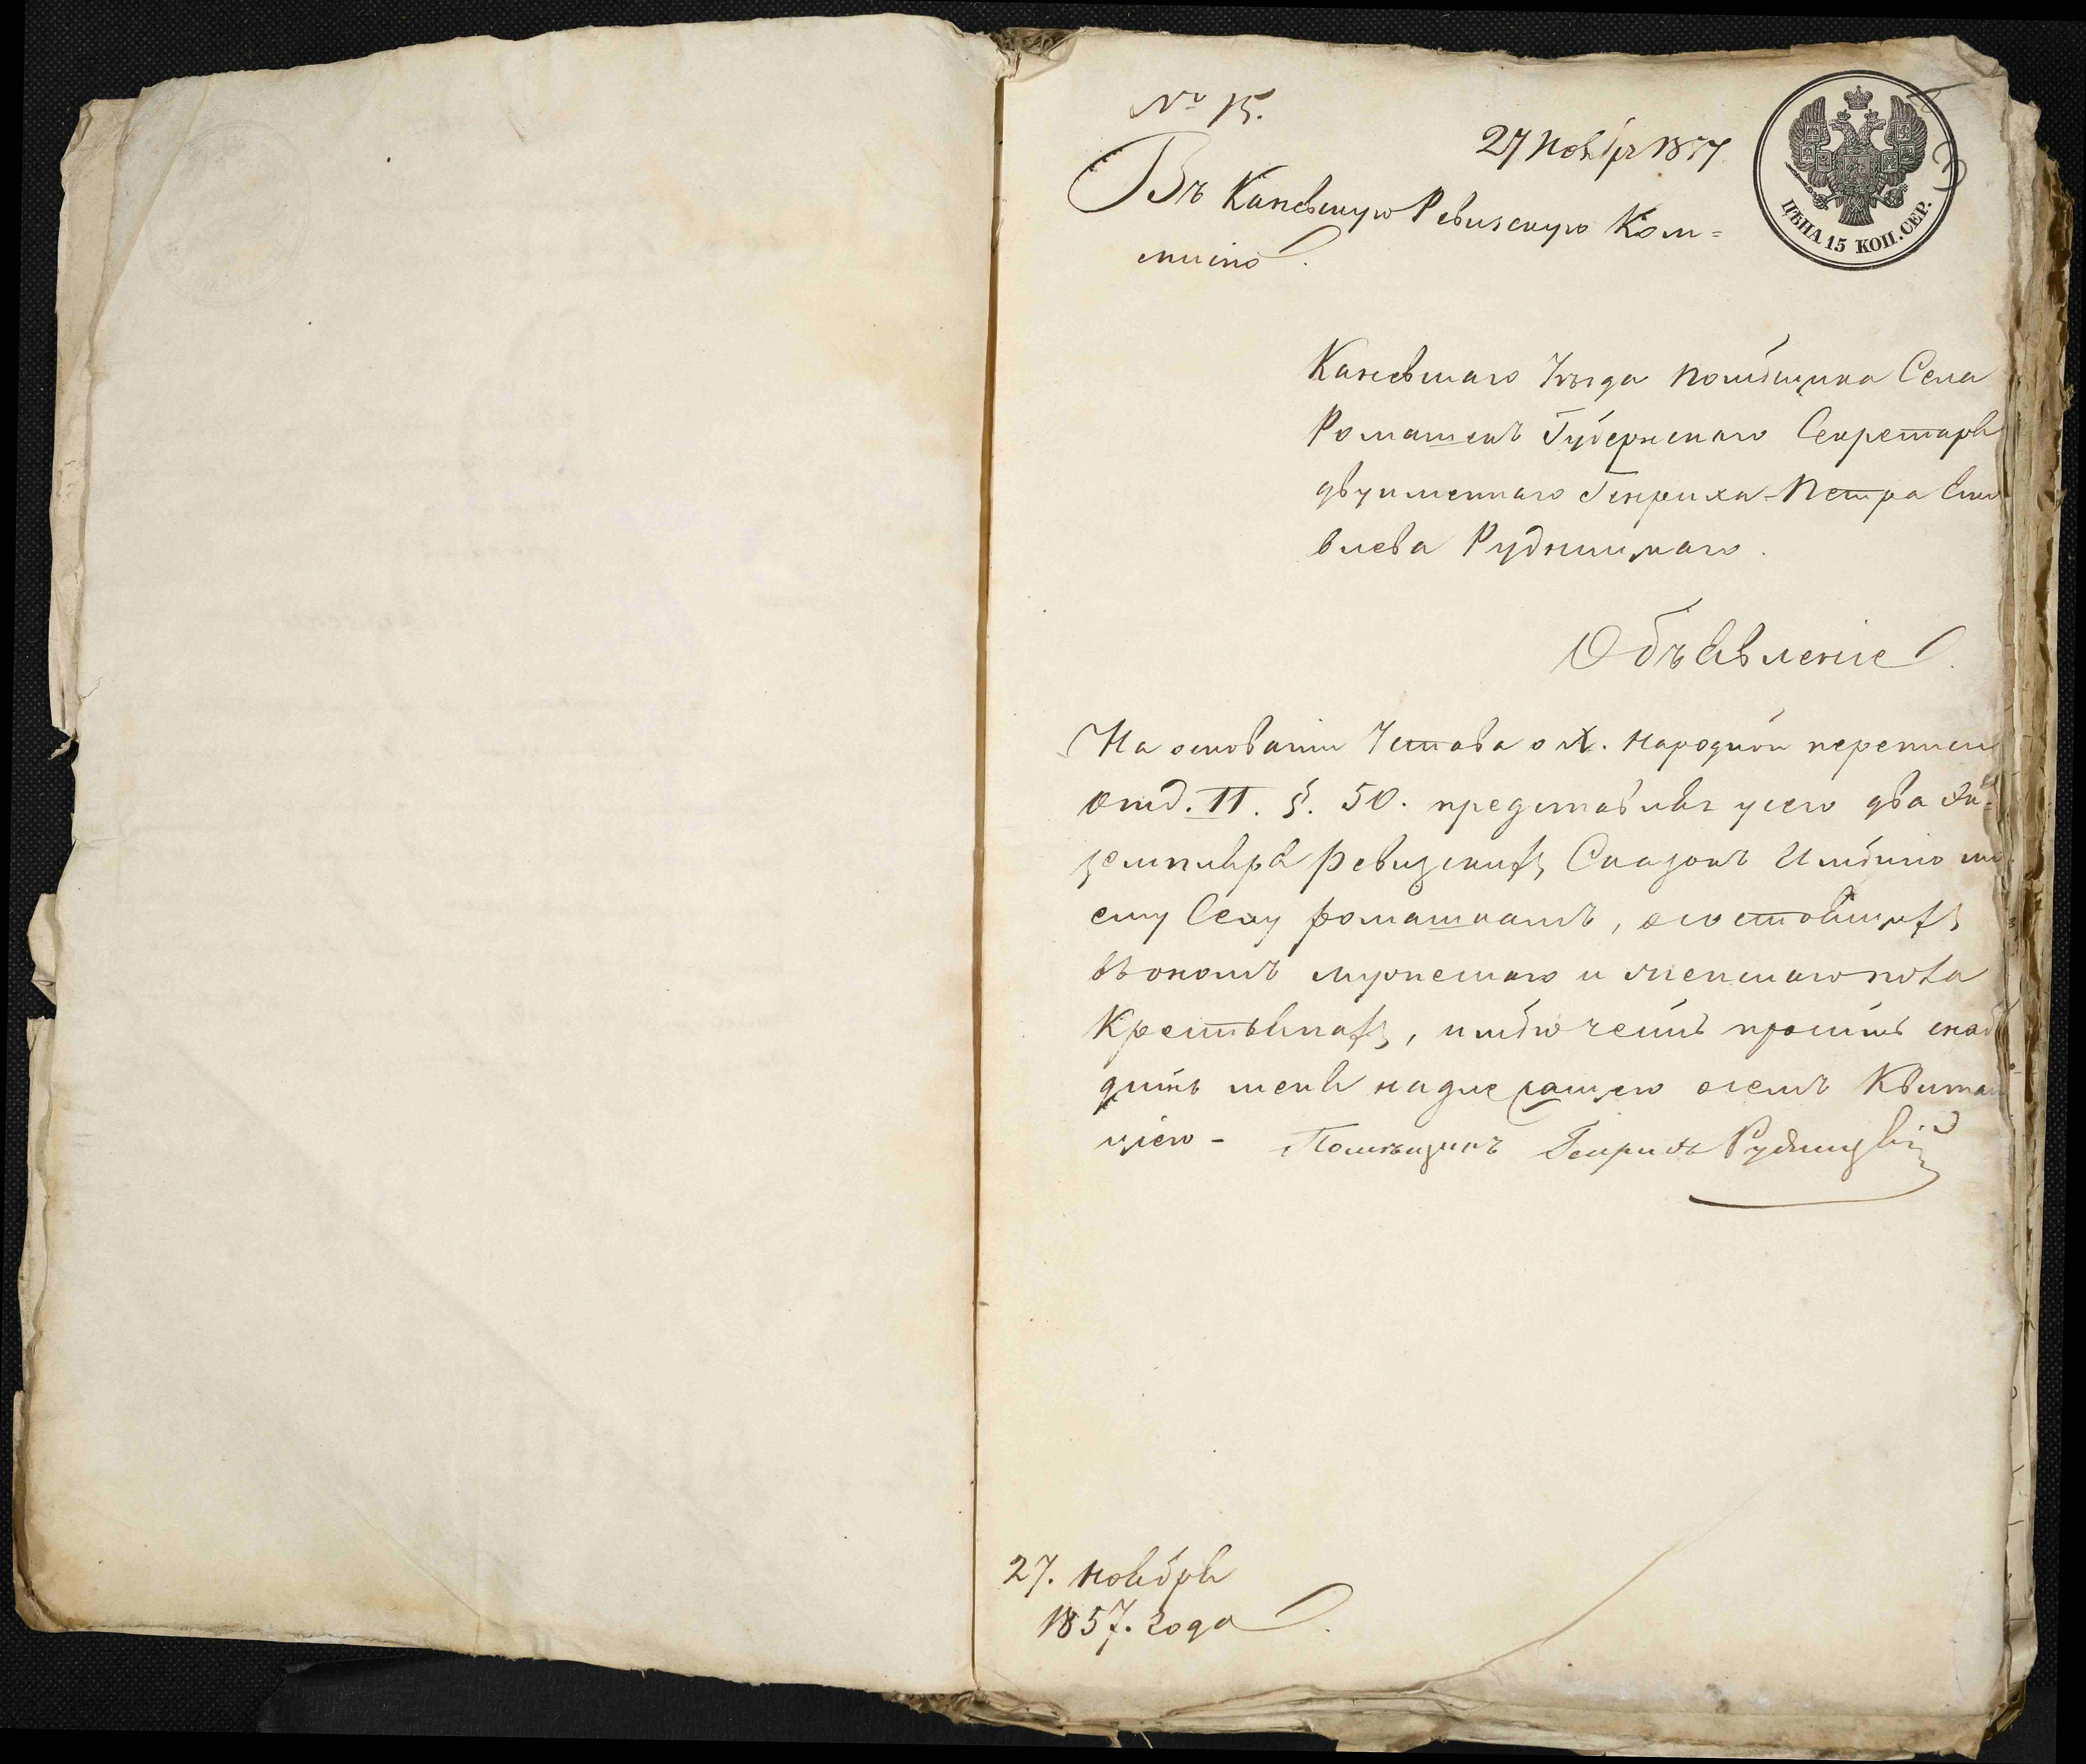 № 15.
27 Ноябр 1857
ЦѢНА 15 КОП. СЕР.
Въ Каневскую Ревизскую Ком=
мисію.
Каневскаго Уѣзда помѣщика Села
Ромашекъ Губернскаго Секретаря
двуименнаго Генриха-Петра
Рудницкаго.
Объявленіе.
На основаніи Устава о X. народной переписи
Отд. II. §. 50. представляя у сего два Эк=
земпляра Ревизскихъ Сказокъ Имѣнію мо
ему Селу Ромашкамъ, о состоящихъ
въ ономъ мужескаго и женскаго пола
Крестьянахъ, имѣю честь просить снаб
дить меня надлежащею о семъ Квитан
ціею - Помѣщикъ Генрихъ Рудницкій
27. Ноября
1857. Года.